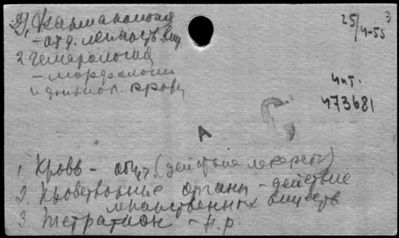 2) Фармакология
- отд. лекарств. вещ.
25/4-55
2 Гематология
- морфология
и физиол. крови
Чит.
473681
A
1. Кровь - общ. (действие лекарств)
2. Кроветворные органы - действие
лекарственных веществ
3. Тетратион - Н.р.